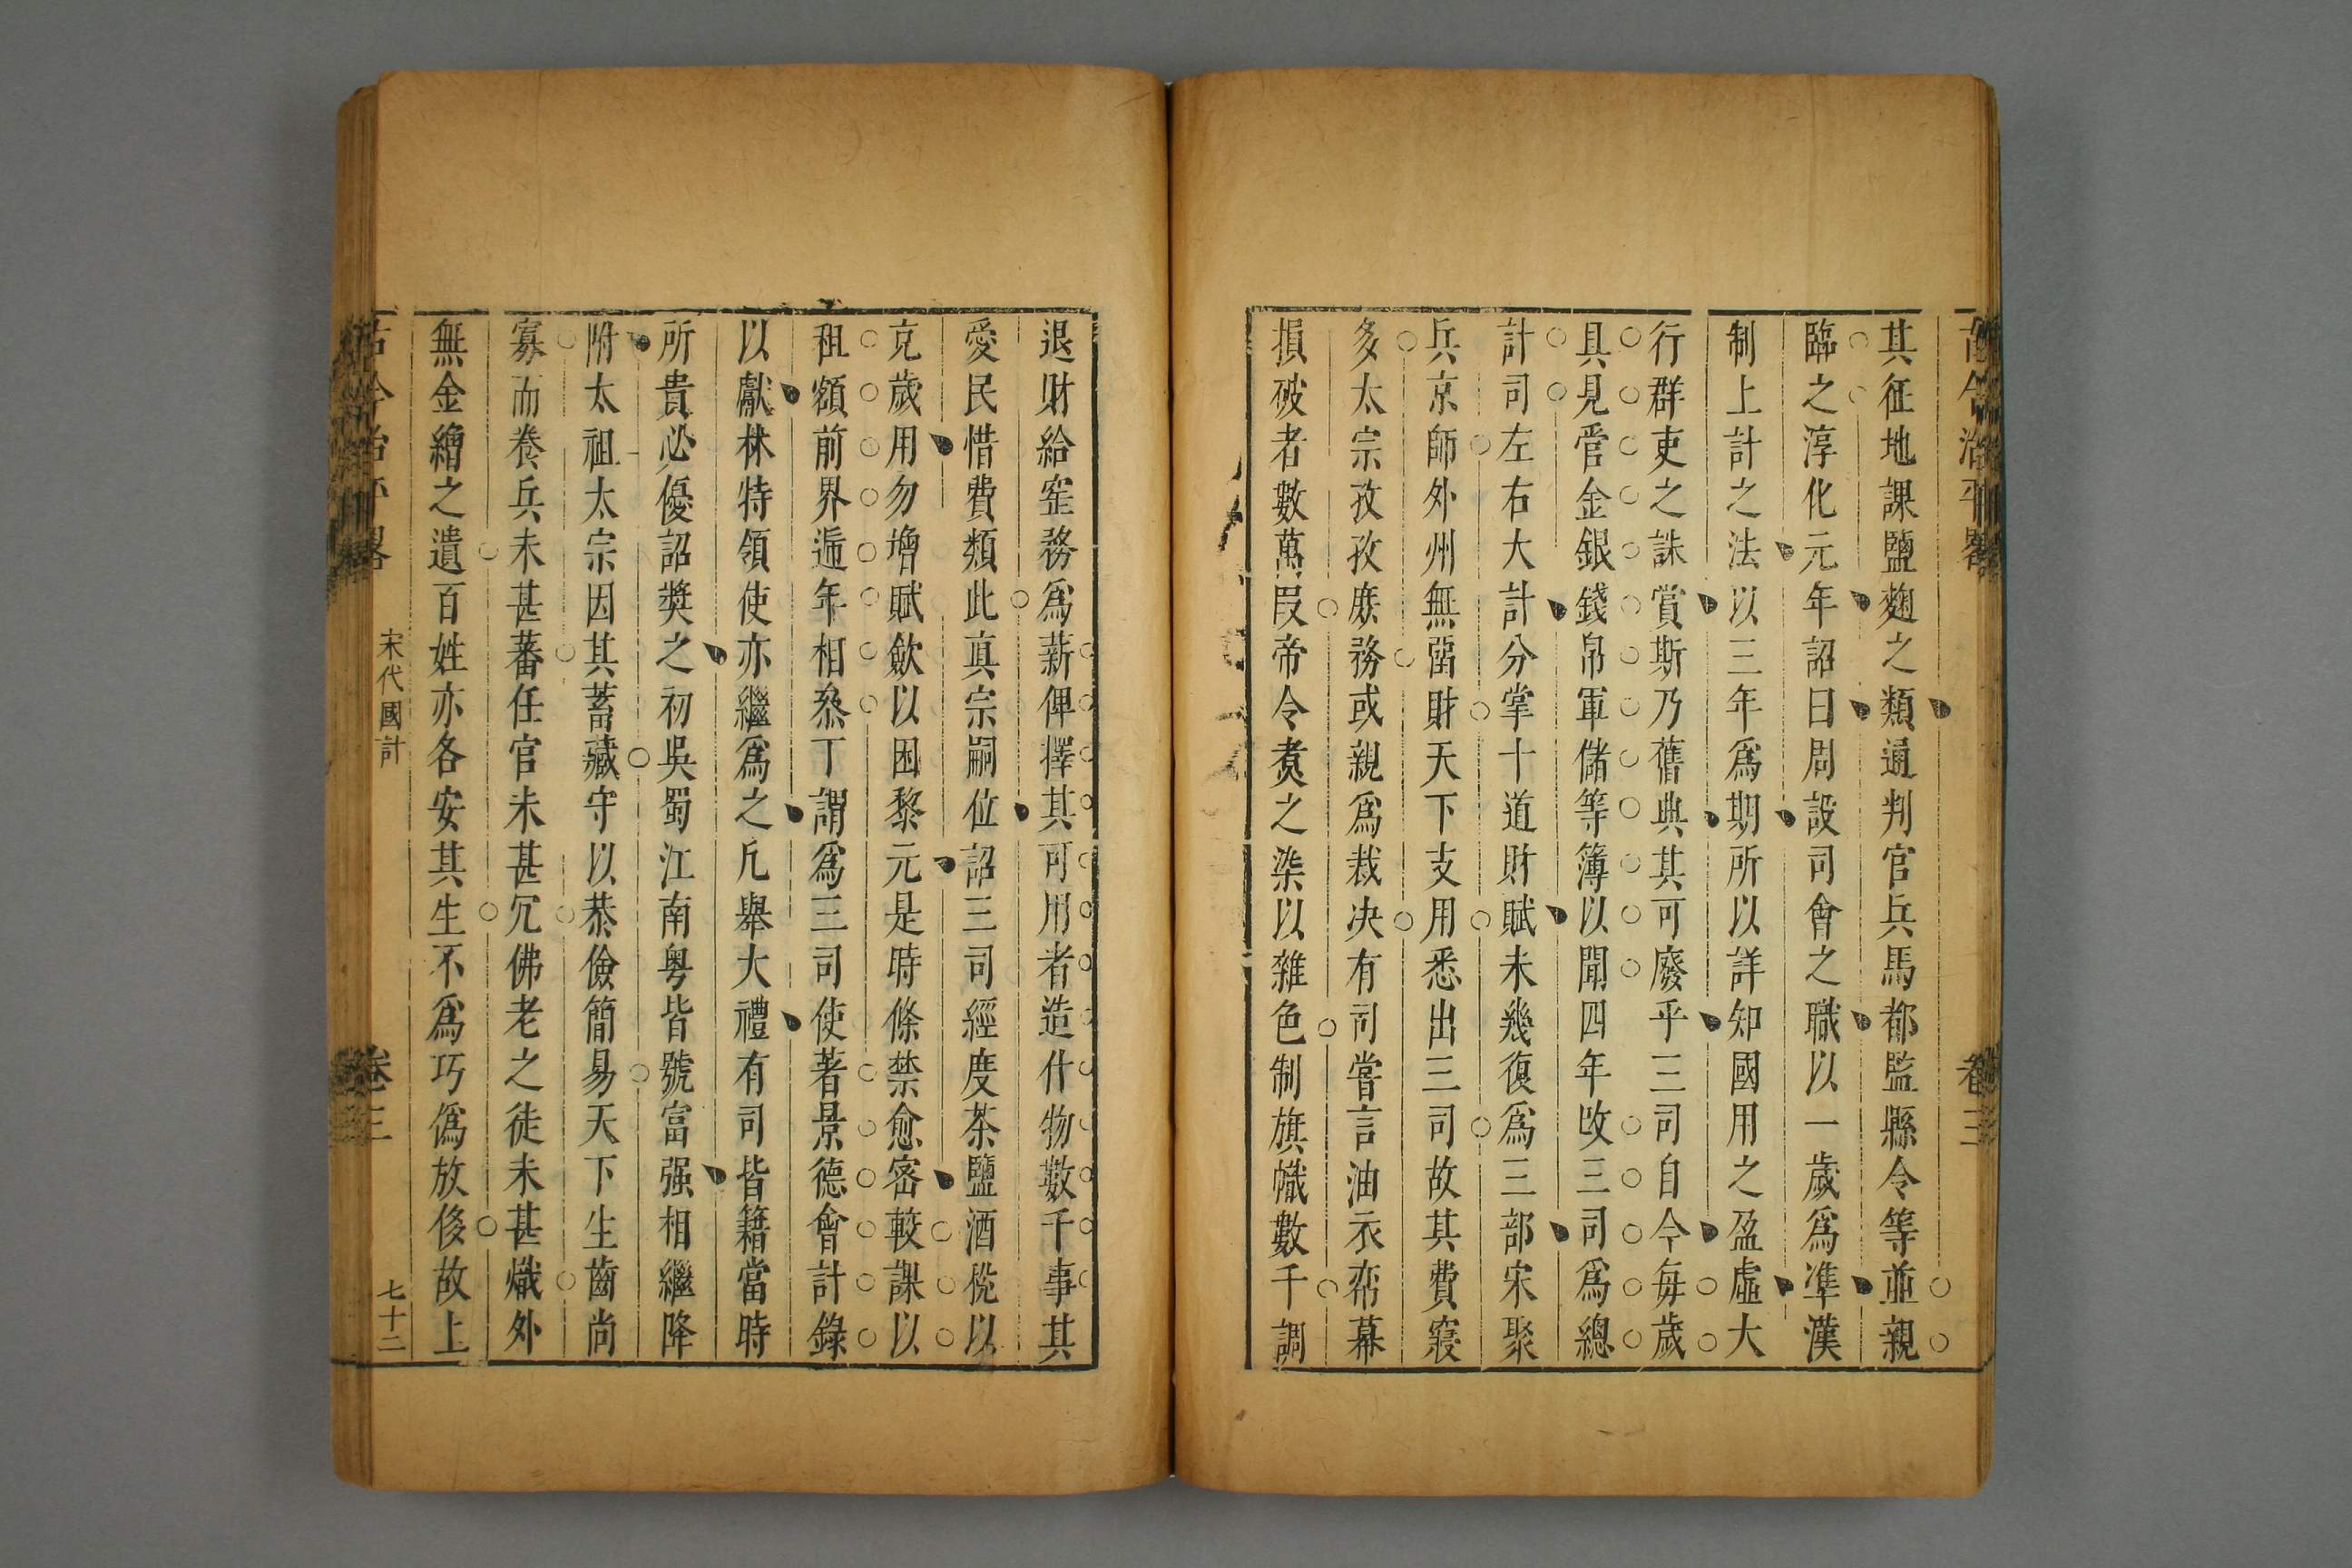 古今治平畧
卷三
其征地課鹽麹之類通判官兵馬都監縣令等並親
臨之淳化元年詔曰周設司會之職以一歲爲準漢
制上計之法以三年爲期所以詳知國用之盈虛大
行群吏之誅賞斯乃舊典其可廢乎三司自今每歲
具見管金銀錢帛軍儲等簿以聞四年改三司爲總
計司左右大計分掌十道財賦未幾復爲三部宋聚
兵京師外州無畱財天下支用悉出三司故其費寖
多太宗孜孜庶務或親爲裁决有司嘗言油衣帟幕
損破者數萬段帝令煑之染以雜色制旗幟數千調
退財給窑務爲薪俾擇其可用者造什物數千事其
愛民惜費類此真宗嗣位詔三司經度茶鹽酒稅以
充歲用勿增賦歛以困黎元是時條禁愈密較課以
租額前界遞年相叅丁謂爲三司使著景德會計錄
以獻林特領使亦繼爲之凢舉大禮有司皆籍當時
所貴必優詔奬之初吳蜀江南粵皆號富强相繼降
附太祖太宗因其蓄藏守以恭儉簡易天下生齒尚
寡而養兵未甚蕃任官未甚冗佛老之徒未甚熾外
無金繒之遺百姓亦各安其生不爲巧僞放侈故上
古今治平畧
宋代國計
卷三
七十二